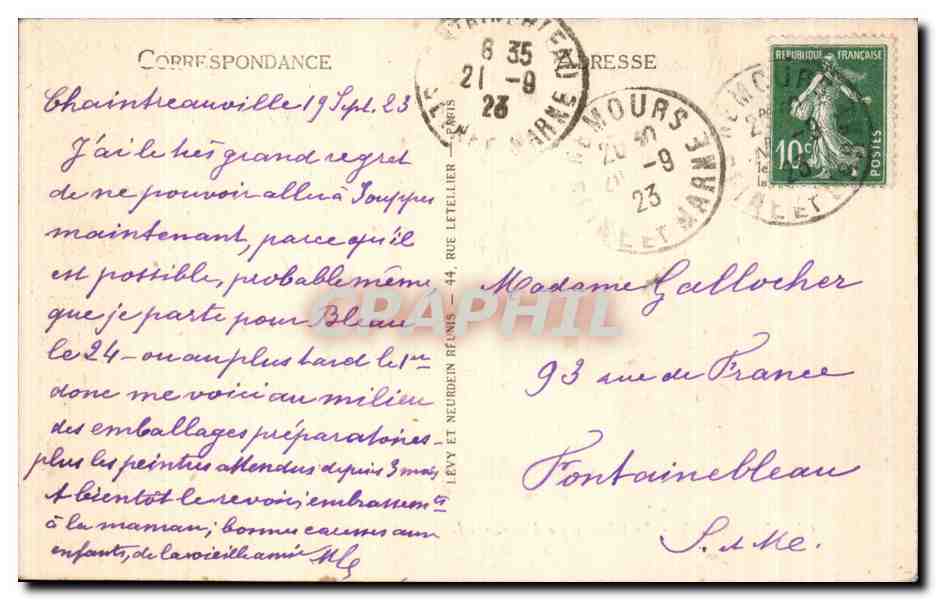 CORRESPONDANCE
Chaintreauville 19 Sept. 23
J'ai le très grand regret
de ne pouvoir aller à Souppes
maintenant, parce qu'il
est possible, probable même
que je parte pour Bleau
le 24 - ou au plus tard le 1er
donc me voici au milieu
des emballages préparatoires -
plus les peintres attendus depuis 3 mois
A bientôt le revoir, embrassements
à la maman; bonnes caresses aux
enfants, de la vieille amie
LÉVY ET NEURDEIN RÉUNIS - 44, RUE LETELLIER - PARIS
ADRESSE
Madame Gallocher
93 rue de France
Fontainebleau
S. et Me.
8 35
21 -9
23
ET MARNE
NEMOURS
20
-9
23
SEINE ET MARNE
NEMOURS
RÉPUBLIQUE FRANÇAISE
10c
POSTES
CPAPHIL